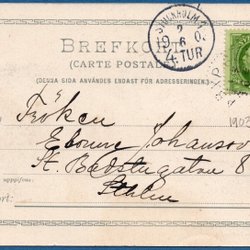 BREFKORT
(CARTE POSTALE)
(DENNA SIDA ANVÄNDES ENDAST FÖR ADRESSERINGEN.)
STOCKHOLM
2
19 6 0
4.TUR
Fröken
Johanson
St. Badstugatan 8
Sthlm
1903